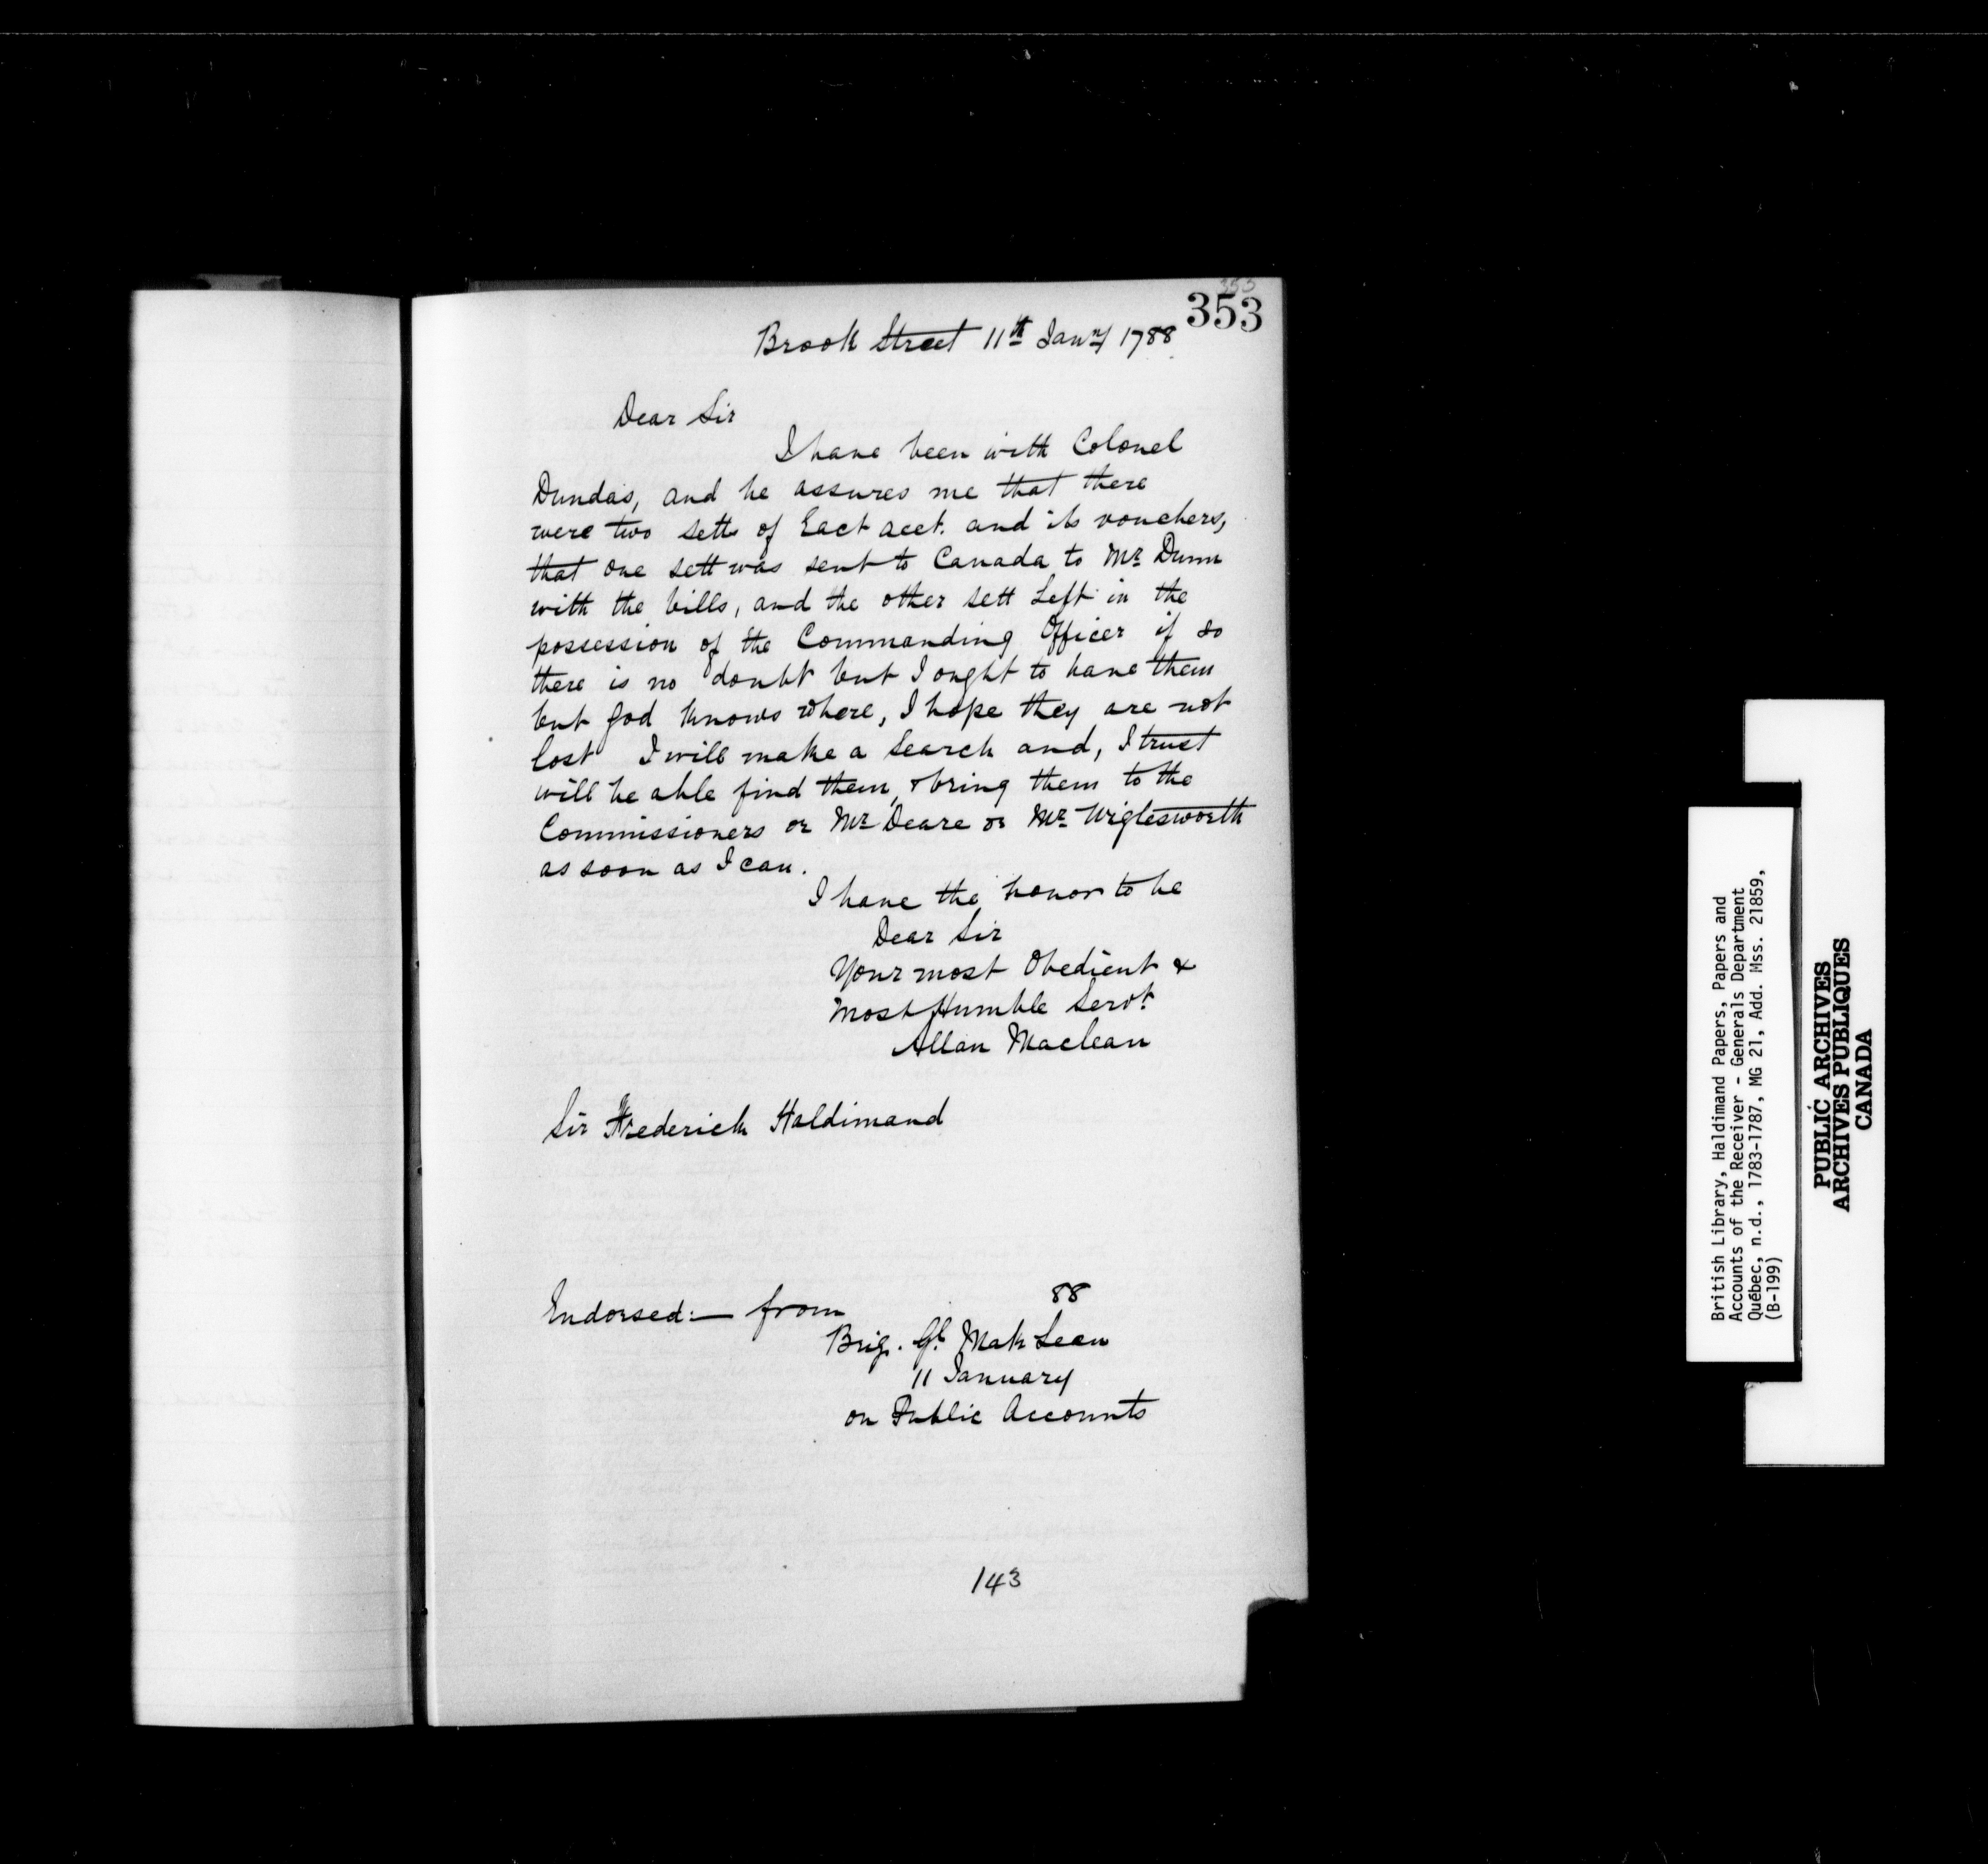 353
353
Brook Street 11th Janry 1788
Dear Sir
I have been with Colonel
Dundas, and he assures me that there
were two setts of Eact acct. and its vouchers,
that one sett was sent to Canada to Mr Dunn
with the bills, and the other sett Left in the
possession of the Commanding Officer if so
there is no doubt but I ought to have them
but god knows where, I hope they are not
lost I will make a Search and, I trust
will be able find them, & bring them to the
Commissioners or Mr Deare or Mr Wiglesworth
as soon as I can.
I have the honor to be
Dear Sir
Your most Obedient &
Most Humble Servt.
Allan Maclean
Sir Frederick Haldimand
Endorsed:— from 88
Brig. Gl. Mak Lean
11 January
on Public Accounts
143
British Library, Haldimand Papers, Papers and
Accounts of the Receiver - Generals Department
Québec, n.d., 1783-1787, MG 21, Add. Mss. 21859,
(B-199)
PUBLIC ARCHIVES
ARCHIVES PUBLIQUES
CANADA